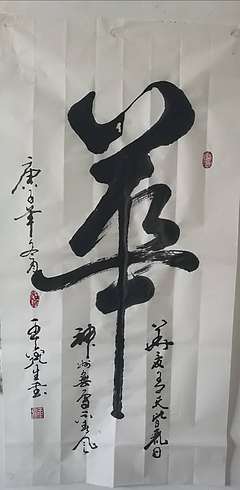 華
華夏青天皆麗日
神州無處不春風
庚子年冬月
王 生書